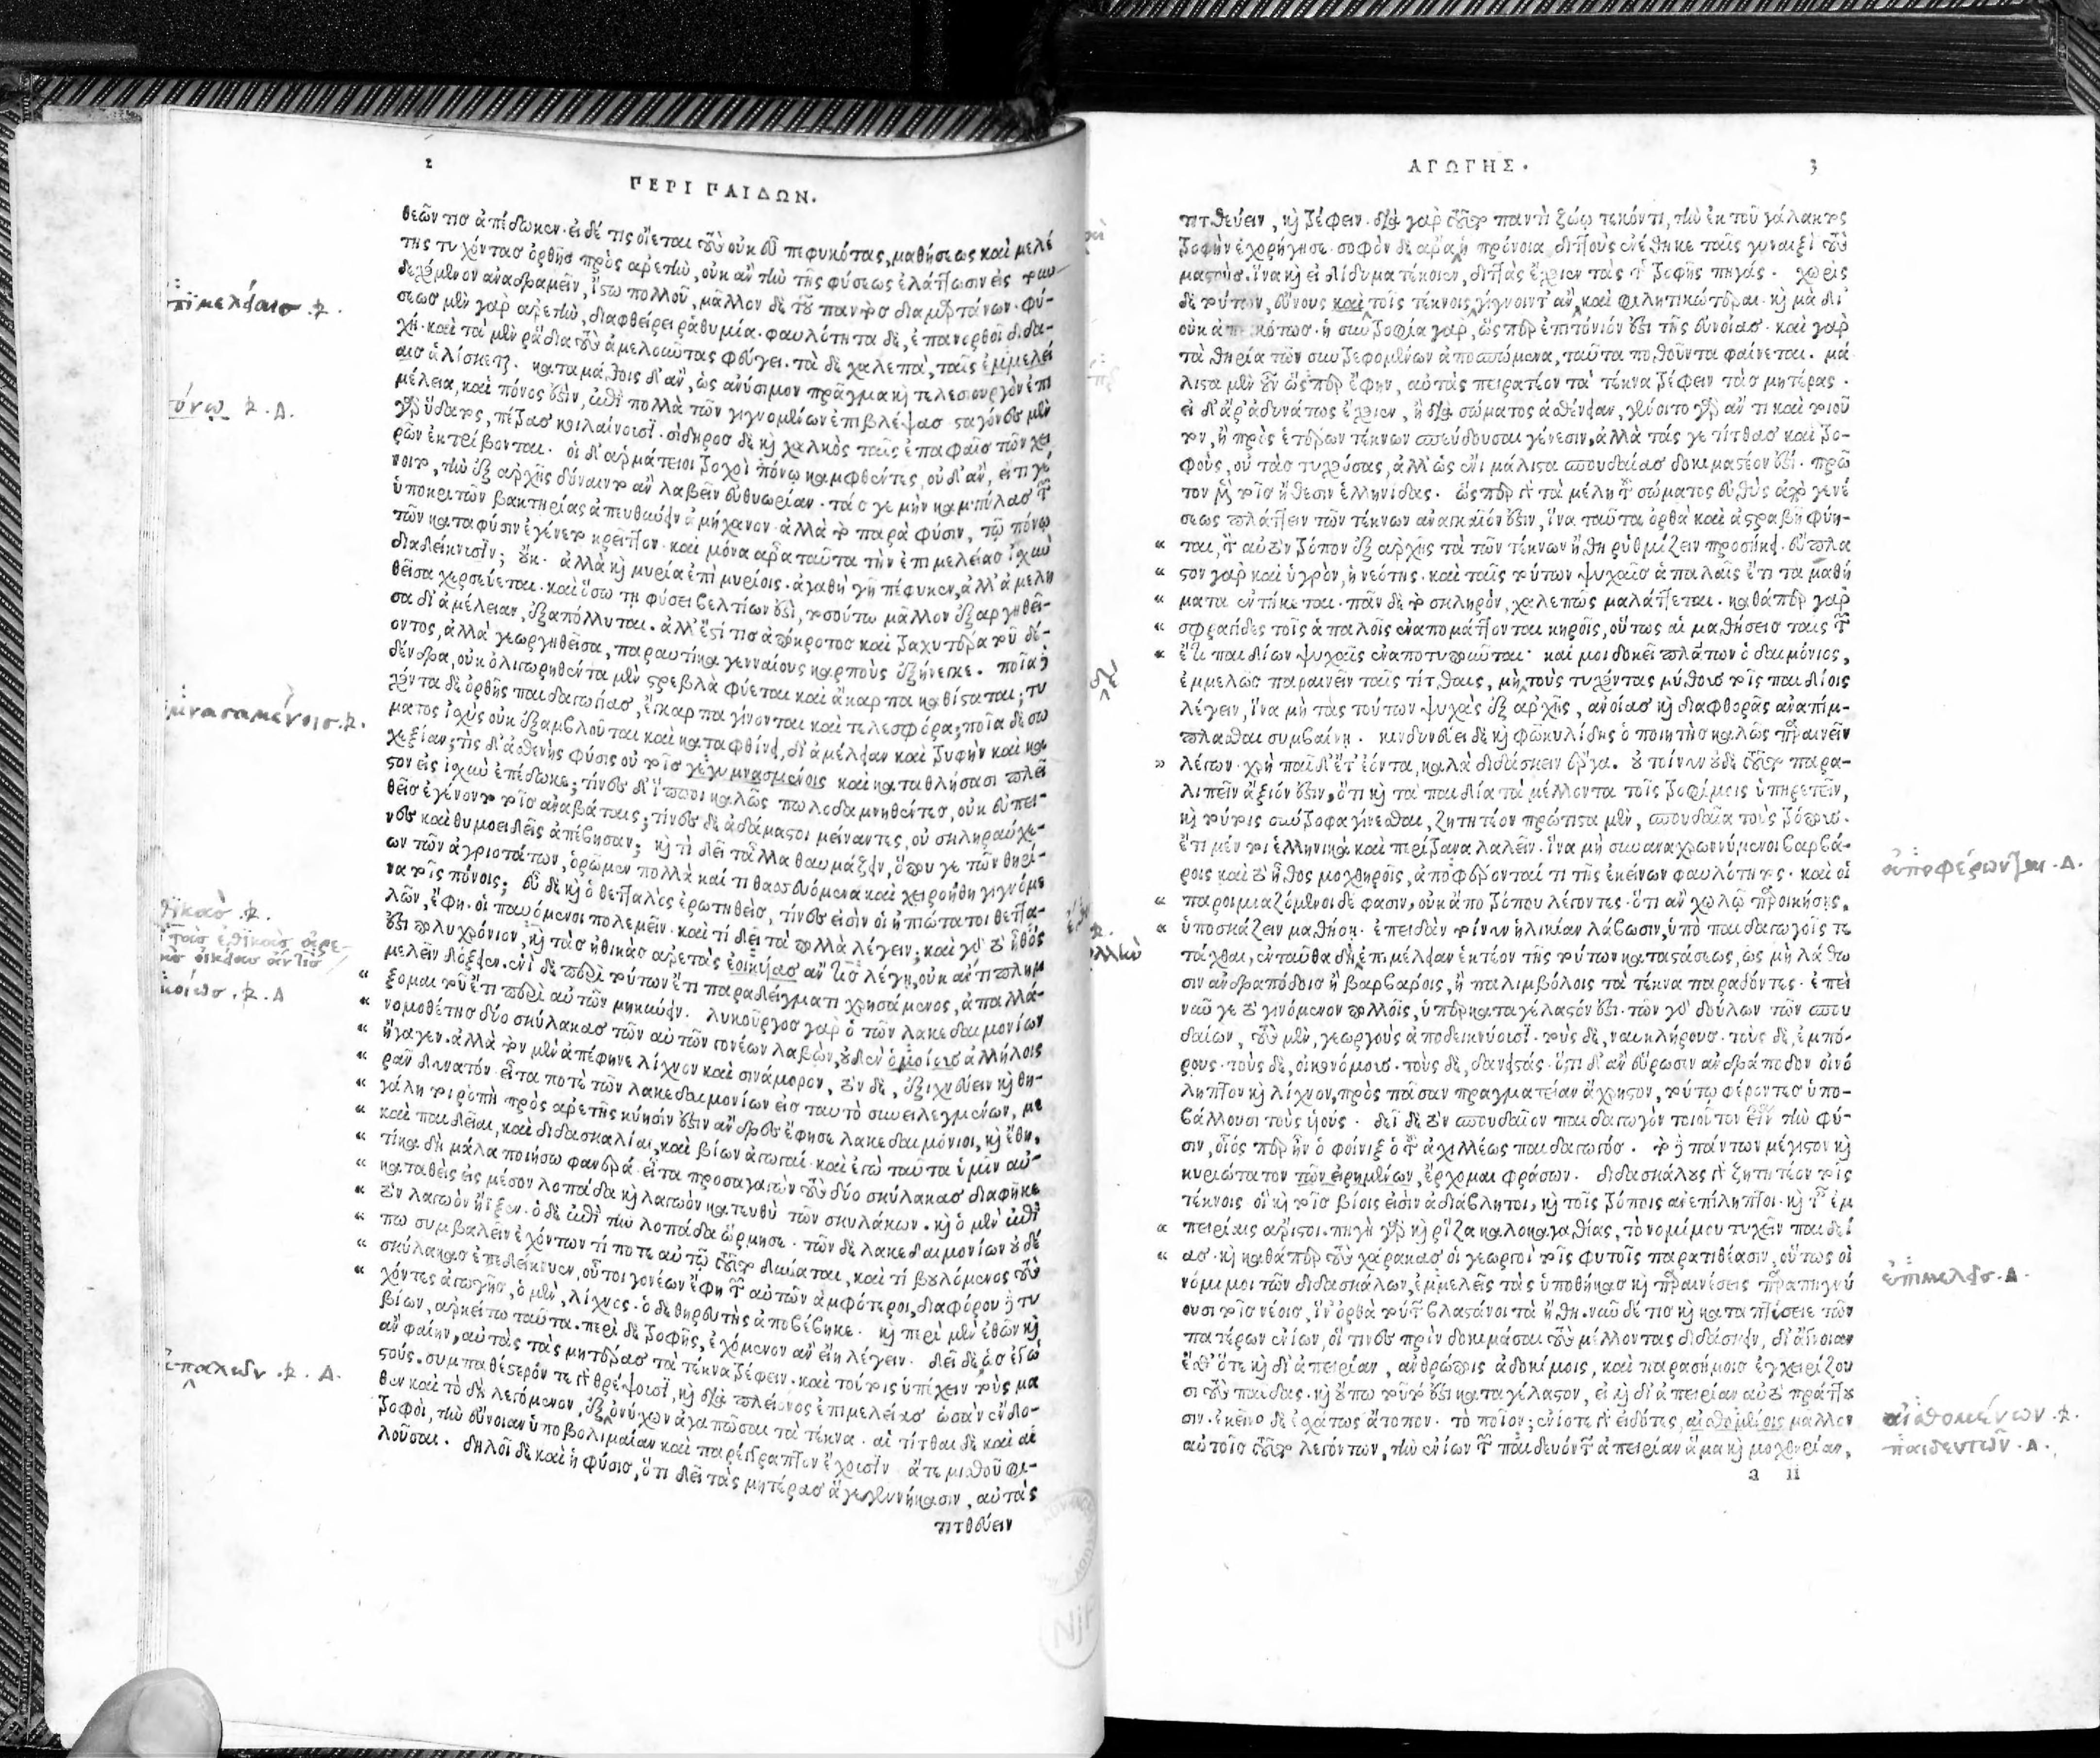 2
ΠΕΡΙ ΠΑΙΔΩΝ.
θεῶν τισ ἀπέδωκεν. εἰ δέ τις οἴεται τοὺσ οὐκ εὖ πεφυκότας, μαθήσεως καὶ μελέ
της τυχόντασ ὀρθῆσ πρὸς ἀρετὴν, οὐκ ἂν τὴν τῆς φύσεως ἐλάττωσιν εἰς τοὐν
δεχόμενον ἀναδραμεῖν, ἴστω πολλοῦ, μᾶλλον δὲ τοῦ παντὸσ διαμαρτάνων. φύ-
σεωσ μὲν γὰρ ἀρετὴν, διαφθείρει ῥᾳθυμία. φαυλότητα δὲ, ἐπανορθοῖ διδα-
χή. καὶ τὰ μὲν ῥᾴδια τοὺσ ἀμελοῦντας φεύγει. τὰ δὲ χαλεπὰ, ταῖς ἐμμελεί
αισ ἁλίσκεται. καταμάθοις δ' ἂν, ὡς ἀνύσιμον πρᾶγμα καὶ τελεσιουργὸν ἐπι
μέλεια, καὶ πόνος ἐστὶν, ἐπὶ πολλὰ τῶν γιγνομένων ἐπιβλέψασ. σταγόνες μὲν
γὰρ ὕδατος, πέτρασ κοιλαίνουσι. σίδηροσ δὲ καὶ χαλκὸς ταῖς ἐπαφαῖσ τῶν χει
ρῶν ἐκτρίβονται. οἱ δ' ἁρμάτειοι τροχοὶ πόνῳ καμφθέντες, οὐδ' ἂν, εἴ τι γέ
νοιτο, τὴν ἐξ ἀρχῆς δύναιντο ἂν λαβεῖν εὐθυωρίαν. τάσ γε μὴν καμπύλασ τῶν
ὑποκριτῶν βακτηρίας ἀπευθύνειν ἀμήχανον. ἀλλὰ τὸ παρὰ φύσιν, τῷ πόνῳ
τῶν κατα φύσιν ἐγένετο κρεῖττον. καὶ μόνα ἆρα ταῦτα τὴν ἐπιμελείασ ἰσχὺν
διαδείκνυσιν; οὔκ. ἀλλὰ καὶ μυρία ἐπὶ μυρίοις. ἀγαθὴ γῆ πέφυκεν, ἀλλ' ἀμελη
θεῖσα χερσεύεται. καὶ ὅσω τῇ φύσει βελτίων ἐστὶ, τοσούτω μᾶλλον ἐξαργηθεῖ-
σα δι' ἀμέλειαν, ἐξαπόλλυται. ἀλλ' ἔστι τισ ἀπόκροτοσ καὶ τραχυτέρα τοῦ δέ-
οντος, ἀλλὰ γεωργηθεῖσα, παραυτίκα γενναίους καρποὺς ἐξήνεγκε. ποῖα δὲ
δένδρα, οὐκ ὀλιγωρηθέντα μὲν στρεβλὰ φύεται καὶ ἄκαρπα καθίσταται; τυ
χόντα δὲ ὀρθῆς παιδαγωγίας, ἔγκαρπα γίνονται καὶ τελεσφόρα; ποῖα δὲ σώ
ματος ἰσχὺς οὐκ ἐξαμβλοῦται καὶ καταφθίνει, δι' ἀμέλειαν καὶ τρυφὴν καὶ κα
χεξίαν; τὶς δ' ἀσθενὴς φύσις οὐ τοῖσ γεγυμνασμένοις καὶ καταθλήσασι πλεῖ
στον εἰς ἰσχὺν ἐπέδωκε; τίνες δ' ἵπποι καλῶς πωλοδαμνηθέντεσ, οὐκ εὐπει-
θεῖσ ἐγένοντο τοῖσ ἀναβάταις; τίνες δὲ ἀδάμαστοι μείναντες, οὐ σκληραύχε-
νες καὶ θυμοειδεῖς ἀπέβησαν; καὶ τὶ δεῖ τἆλλα θαυμάζειν, ὅπου γε τῶν θηρί-
ων τῶν ἀγριοτάτων, ὁρῶμεν πολλὰ καί τιθασσευόμενα καὶ χειροήθη γιγνόμε
να τοῖς πόνοις; εὖ δὲ καὶ ὁ θετταλὸς ἐρωτηθεὶσ, τίνες εἰσὶν οἱ ἠπιώτατοι θεττα-
λῶν, ἔφη. οἱ παυόμενοι πολεμεῖν. καὶ τί δεῖ τὰ πολλὰ λέγειν; καὶ γὰρ τὸ ἦθός
ἐστι πολυχρόνιον, καὶ τὰσ ἠθικὰσ ἀρετὰς ἐοικυίασ ἄν τισ λέγῃ, οὐκ ἄν τι πλημ
μελεῖν δόξειεν. ἑνὶ δὲ περὶ τούτων ἔτι παραδείγματι χρησάμενος, ἀπαλλά-
“ ξομαι τοῦ ἔτι περὶ αὐτῶν μηκύνειν. λυκοῦργοσ γὰρ ὁ τῶν λακεδαιμονίων
“ νομοθέτησ δύο σκύλακασ τῶν αὐτῶν γονέων λαβὼν, οὐδὲν ὁμοίωσ ἀλλήλοις
“ ἤγαγεν. ἀλλὰ τὸν μὲν ἀπέφηνε λίχνον καὶ σινάμορον, τὸν δὲ, ἐξιχνεύειν καὶ θη-
“ ρᾶν δυνατόν. εἶτα ποτὲ τῶν λακεδαιμονίων εἰσ ταυτὸ συνειλεγμένων, με
“ γάλη τοι ῥοπὴ πρὸς ἀρετῆς κύησίν ἐστιν ἄνδρες ἔφησε λακεδαιμόνιοι, καὶ ἔθη,
“ καὶ παιδεῖαι, καὶ διδασκαλίαι, καὶ βίων ἀγωγαί. καὶ ἐγὼ ταῦτα ὑμῖν αὐ-
“ τίκα δὴ μάλα ποιήσω φανερά. εἶτα προσαγαγὼν τοὺσ δύο σκύλακασ διαφῆκε
“ καταθεὶς εἰς μέσον λοπάδα καὶ λαγωὸν κατευθὺ τῶν σκυλάκων. καὶ ὁ μὲν ἐπὶ
“ τὸν λαγωὸν ἤϊξεν. ὁ δὲ ἐπὶ τὴν λοπάδα ὥρμησε. τῶν δὲ λακεδαιμονίων οὐδέ
“ πω συμβαλεῖν ἐχόντων τί ποτε αὐτῷ τοῦτο δύναται, καὶ τί βουλόμενος τοὺσ
“ σκύλακασ ἐπεδείκνυεν, οὗτοι γονέων ἔφη τῶν αὐτῶν ἀμφότεροι, διαφόρου δὲ τυ
“ χόντες ἀγωγῆσ, ὁ μὲν, λίχνος. ὁ δὲ θηρευτὴς ἀποβέβηκε. καὶ περὶ μὲν ἐθῶν καὶ
βίων, ἀρκείτω ταῦτα. περὶ δὲ τροφῆς, ἐχόμενον ἂν εἴη λέγειν. δεῖ δὲ ὡσ ἐγὼ
ἂν φαίην, αὐτὰς τὰς μητέρασ τὰ τέκνα τρέφειν. καὶ τούτοις ὑπέχειν τοὺς μα
στούς. συμπαθέστερόν τε γὰρ θρέψουσι, καὶ διὰ πλείονος ἐπιμελείασ ὡσὰν ἔνδο-
θεν καὶ τὸ δὴ λεγόμενον, ἐξ ὀνύχων ἀγαπῶσαι τὰ τέκνα. αἱ τίτθαι δὲ καὶ αἱ
τροφοὶ, τὴν εὔνοιαν ὑποβολιμαίαν καὶ παρέγγραπτον ἔχουσιν ἅτε μισθοῦ φι-
λοῦσαι. δηλοῖ δὲ καὶ ἡ φύσισ, ὅτι δεῖ τὰς μητέρασ ἃ γεγεννήκασιν, αὐτὰς
τιτθεύειν
πόνῳ R. Δ.
ΑΓΩΓΗΣ.
3
τιτθεύειν, καὶ τρέφειν. διὰ γὰρ τοῦτο παντὶ ζώῳ τεκόντι, τὴν ἐκ τοῦ γάλακτος
τροφὴν ἐχορήγησε. σοφὸν δὲ ἄρα ἡ πρόνοια διττοὺς ἐνέθηκε ταῖς γυναιξὶ τοὺσ
μαστούσ. ἵνα καὶ εἰ δίδυμα τέκοιεν, διττὰς ἔχοιεν τὰς τῆς τροφῆς πηγάς. χωρὶς
δὲ τούτων, εὔνους καὶ τοῖς τέκνοις γίγνοιντ' ἂν, καὶ φιλητικώτεραι. καὶ μὰ δί'
οὐκ ἀπεικότωσ. ἡ συντροφία γὰρ, ὥσπερ ἐπιτόνιόν ἐστι τῆς εὐνοίασ. καὶ γὰρ
τὰ θηρία τῶν συντρεφομένων ἀποσπώμενα, ταῦτα ποθοῦντα φαίνεται. μά
λιστα μὲν οὖν ὥσπερ ἔφην, αὐτὰς πειρατέον τὰ τέκνα τρέφειν τὰσ μητέρας.
εἰ δ' ἄρ' ἀδυνάτως ἔχοιεν, ἢ διὰ σώματος ἀσθένειαν, γένοιτο γὰρ ἄν τι καὶ τοιοῦ
τον, ἢ πρὸς ἑτέρων τέκνων σπεύδουσαι γένεσιν, ἀλλὰ τάς γε τίτθασ καὶ τρο-
φοὺς, οὐ τὰσ τυχούσας, ἀλλ' ὡς ἔνι μάλιστα σπουδαίασ δοκιμαστέον ἐστί. πρῶ
τον μὲν τοῖσ ἤθεσιν ἑλληνίδας. ὥσπερ γὰρ τὰ μέλη τοῦ σώματος εὐθὺς ἀπὸ γενέ
σεως πλάττειν τῶν τέκνων ἀναγκαῖόν ἐστιν, ἵνα ταῦτα ὀρθὰ καὶ ἀστραβῆ φύη-
“ ται, τὸν αὐτὸν τρόπον ἐξ ἀρχῆς τὰ τῶν τέκνων ἤθη ῥυθμίζειν προσήκει. εὔπλα
“ στον γὰρ καὶ ὑγρὸν, ἡ νεότης. καὶ ταῖς τούτων ψυχαῖσ ἁπαλαῖς ἔτι τὰ μαθή
“ ματα ἐντήκεται. πᾶν δὲ τὸ σκληρὸν, χαλεπῶς μαλάττεται. καθάπερ γὰρ
“ σφραγῖδες τοῖς ἁπαλοῖς ἐναπομάττονται κηροῖς, οὕτως αἱ μαθήσεισ ταῖς τῶν
“ ἔτι παιδίων ψυχαῖς ἐναποτυποῦνται. καί μοι δοκεῖ πλάτων ὁ δαιμόνιος,
ἐμμελῶς παραινεῖν ταῖς τίτθαις, μὴ τοὺς τυχόντας μύθουσ τοῖς παιδίοις
λέγειν, ἵνα μὴ τὰς τούτων ψυχὰς ἐξ ἀρχῆς, ἀνοίασ καὶ διαφθορᾶς ἀναπίμ-
πλασθαι συμβαίνῃ. κινδυνεύει δὲ καὶ φωκυλίδης ὁ ποιητὴσ καλῶς παραινεῖν
» λέγων. χρὴ παῖδ' ἔτ' ἐόντα, καλὰ διδάσκειν ἔργα. οὐ τοίνυν οὐδὲ τοῦτο παρα-
λιπεῖν ἄξιόν ἐστιν, ὅτι καὶ τὰ παιδία τὰ μέλλοντα τοῖς τροφίμοις ὑπηρετεῖν,
καὶ τούτοις σύντροφα γίνεσθαι, ζητητέον πρώτιστα μὲν, σπουδαῖα τοὺς τρόπουσ.
ἔτι μέντοι ἑλληνικὰ καὶ περίτρανα λαλεῖν. ἵνα μὴ συναναχρωννύμενοι βαρβά-
ροις καὶ τὸ ἦθος μοχθηροῖς, ἀποφέρονταί τι τῆς ἐκείνων φαυλότητος. καὶ οἱ
“ παροιμιαζόμενοι δέ φασιν, οὐκ ἀπο τρόπου λέγοντες. ὅτι ἂν χωλῷ παροικήσῃς,
“ ὑποσκάζειν μαθήσῃ. ἐπειδὰν τοίνυν ἡλικίαν λάβωσιν, ὑπὸ παιδαγωγοῖς τε
τάχθαι, ἐνταῦθα δὴ ἐπιμέλειαν ἑκτέον τῆς τούτων καταστάσεως, ὡς μὴ λάθω
σιν ἀνδραπόδοισ ἢ βαρβάροις, ἢ παλιμβόλοις τὰ τέκνα παραδόντες. ἐπεὶ
νῦν γε τὸ γινόμενον πολλοῖς, ὑπερκαταγέλαστόν ἐστι. τῶν γὰρ δούλων τῶν σπου
δαίων, τοὺσ μὲν, γεωργοὺς ἀποδεικνύουσι. τοὺς δὲ, ναυκλήρουσ. τοὺς δὲ, ἐμπό-
ρους. τοὺς δὲ, οἰκονόμουσ. τοὺς δὲ, δανειστάς. ὅτι δ' ἂν εὕρωσιν ἀνδράποδον οἰνό
ληπτον καὶ λίχνον, πρὸς πᾶσαν πραγματείαν ἄχρηστον, τούτῳ φέροντεσ ὑπο-
βάλλουσι τοὺς υἱούς. δεῖ δὲ τὸν σπουδαῖον παιδαγωγὸν τοιοῦτον εἶναι τὴν φύ-
σιν, οἷός περ ἦν ὁ φοίνιξ ὁ τοῦ ἀχιλλέως παιδαγωγόσ. τὸ δὲ πάντων μέγιστον καὶ
κυριώτατον τῶν εἰρημένων, ἔρχομαι φράσων. διδασκάλους γὰρ ζητητέον τοῖς
τέκνοις οἳ καὶ τοῖσ βίοις εἰσὶν ἀδιάβλητοι, καὶ τοῖς τρόποις ἀνεπίληπτοι. καὶ τῶν ἐμ
“ πειρίαις ἄριστοι. πηγὴ γὰρ καὶ ῥίζα καλοκαγαθίας, τὸ νομίμου τυχεῖν παιδεί
“ ασ. καὶ καθάπερ τοὺσ χάρακασ οἱ γεωργοὶ τοῖς φυτοῖς παρατιθέασιν, οὕτως οἱ
νόμιμοι τῶν διδασκάλων, ἐμμελεῖς τὰς ὑποθήκασ καὶ παραινέσεις παραπηγνύ
ουσι τοῖσ νέοισ, ἵν' ὀρθὰ τούτων βλαστάνοι τὰ ἤθη. νῦν δέ τισ καὶ καταπτύσειε τῶν
πατέρων ἐνίων, οἵ τινες πρὶν δοκιμάσαι τοὺσ μέλλοντας διδάσκειν, δι' ἄγνοιαν
ἔσθ' ὅτε καὶ δι' ἀπειρίαν, ἀνθρώποις ἀδοκίμοις, καὶ παρασήμοισ ἐγχειρίζου
σι τοὺσ παῖδας. καὶ οὔπω τοῦτ' ἐστι καταγέλαστον, εἰ καὶ δι' ἀπειρίαν αὐτὸ πράττου
σιν. ἐκεῖνο δὲ ἐσχάτως ἄτοπον. τὸ ποῖον; ἐνίοτε γὰρ εἰδότες, αἰσθομένοις μᾶλλον
αὐτοῖσ τοῦτο λεγόντων, τὴν ἐνίων τῶν παιδευόντων ἀπειρίαν ἅμα καὶ μοχθηρίαν,
a ii
ἀποφέρωνται. Δ.
ἐμμελεῖσ. Δ.
αἰσθομένων. R.
παιδευτῶν. Δ.